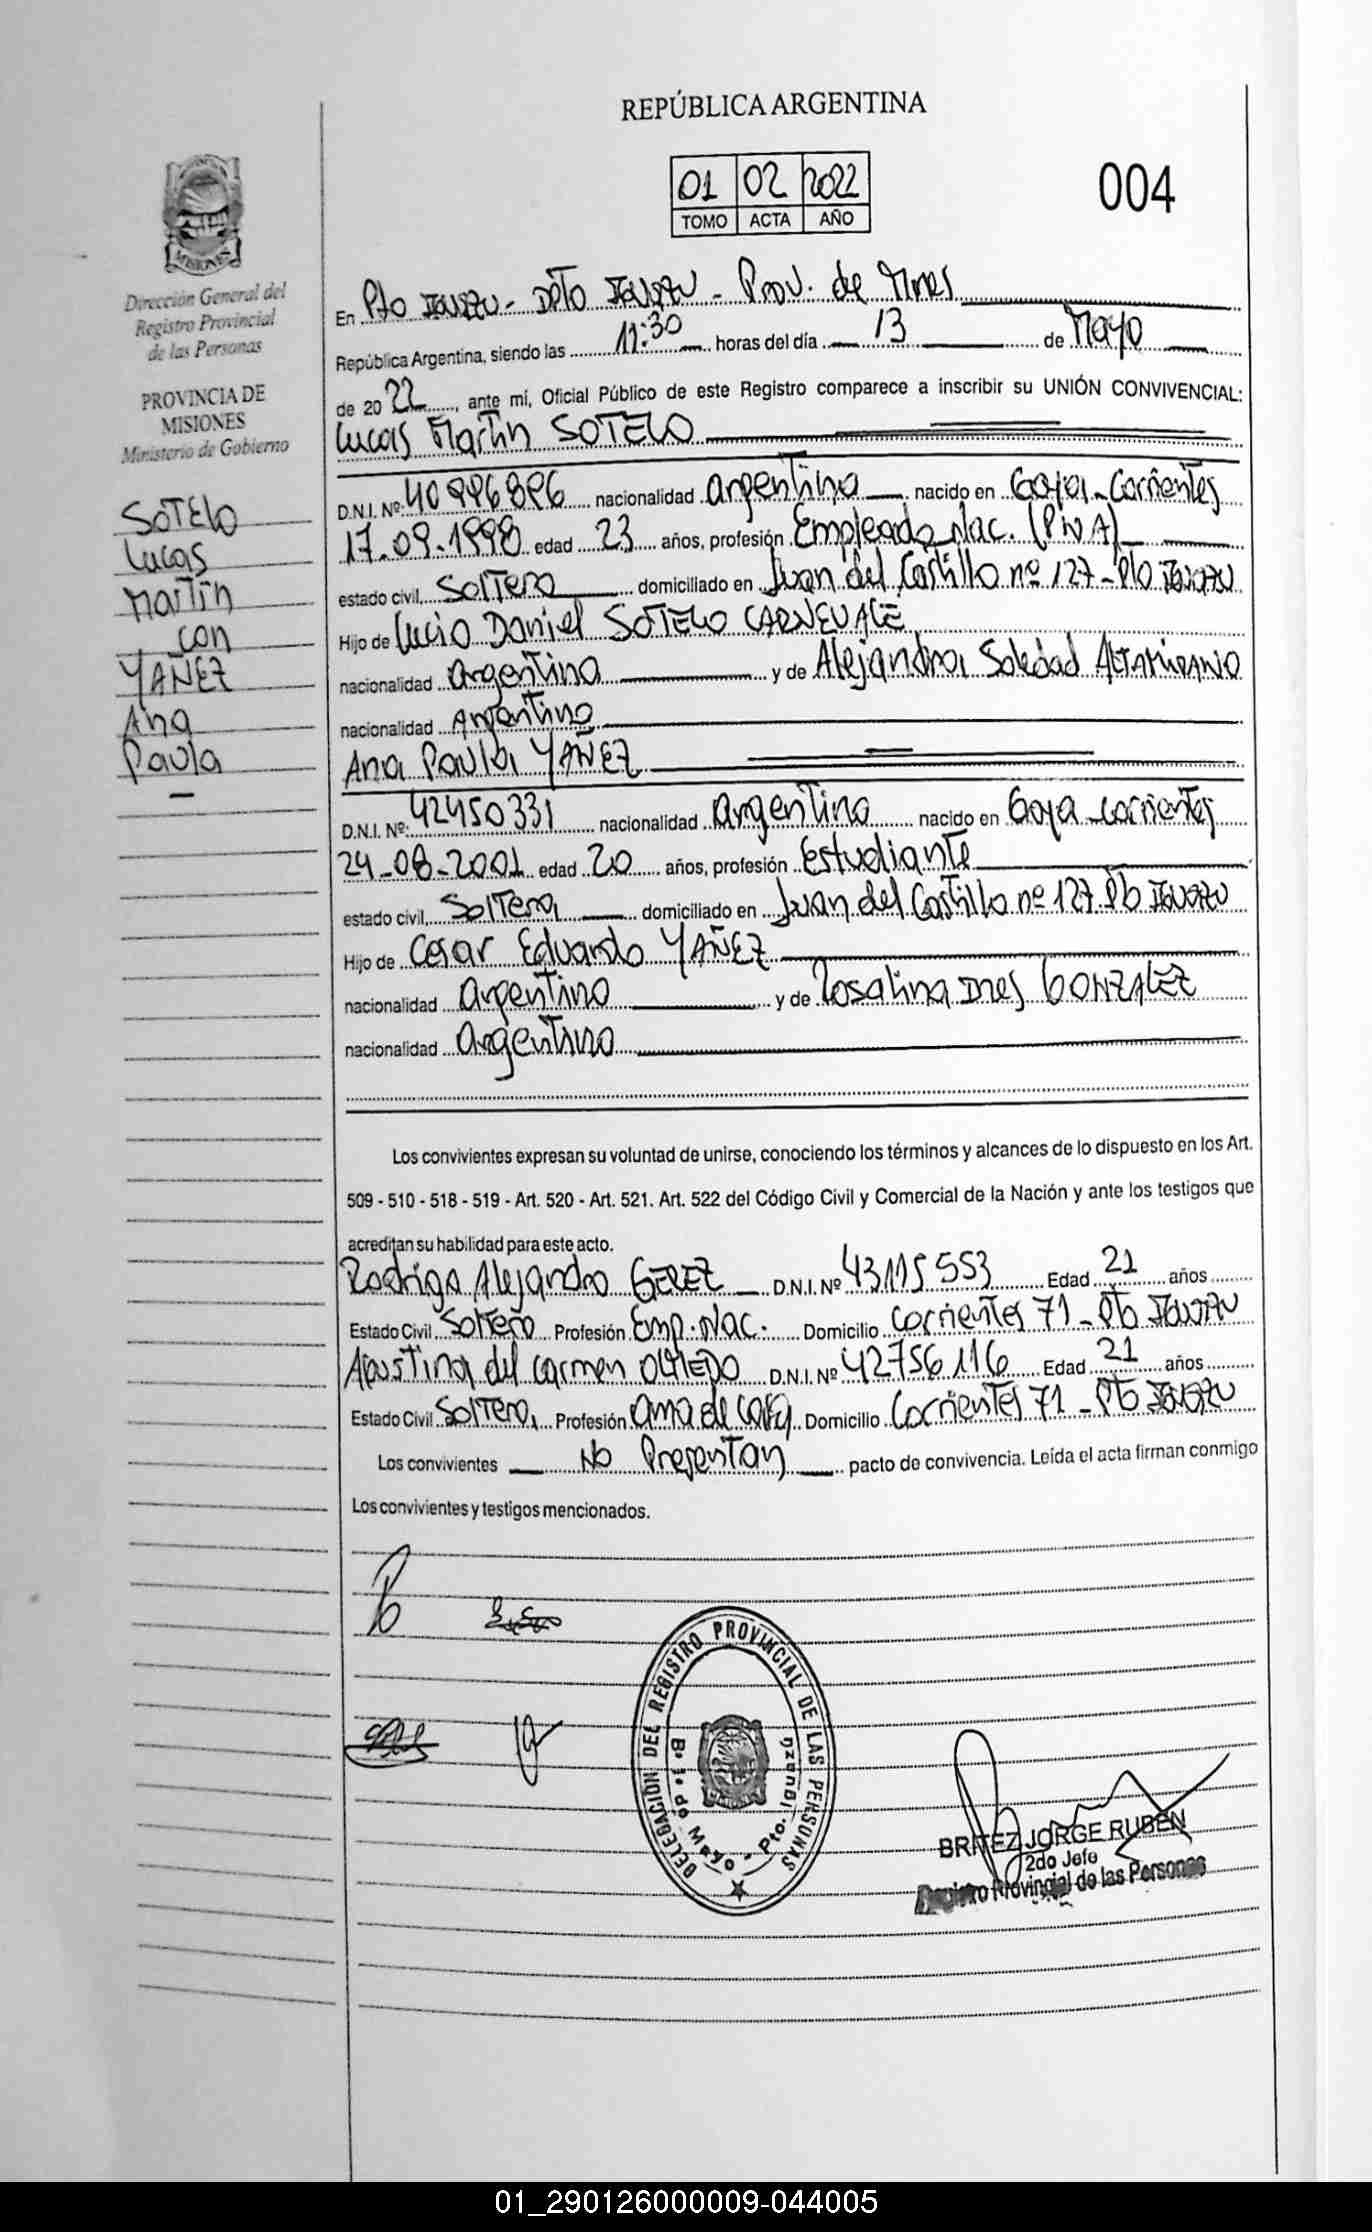 REPÚBLICA ARGENTINA
01 02 2022
TOMO ACTA AÑO
004
MISIONES
Dirección General del
Registro Provincial
de las Personas
PROVINCIA DE
MISIONES
Ministerio de Gobierno
SOTELO
Lucas
Martín
con
YAÑEZ
Ana
Paula
En Pto Iguazu - Dpto Iguazu - Prov. de Mnes
República Argentina, siendo las 11:30 horas del día 13 de Mayo
de 2022, ante mi, Oficial Público de este Registro comparece a inscribir su UNIÓN CONVIVENCIAL:
Lucas Martin SOTELO
D.N.I. Nº: nacionalidad argentina nacido en Goya - Corrientes
17-09-1998 edad 23 años, profesión Empleado Nac. (PNA)
estado civil, soltero domiciliado en Juan del Castillo nº 127 - Pto Iguazu
Hijo de Lucio Daniel SOTELO CARNEVALE
nacionalidad argentina y de Alejandra Soledad ALTAMIRANO
nacionalidad Argentina
Ana Paula YAÑEZ
D.N.I. Nº: 42450331 nacionalidad argentina nacido en Goya - Corrientes
24-08-2001 edad 20 años, profesión Estudiante
estado civil, soltera domiciliado en Juan del Castillo nº 127 Pto Iguazu
Hijo de Cesar Eduardo YAÑEZ
nacionalidad argentina y de Rosalina Ines GONZALEZ
nacionalidad argentina
Los convivientes expresan su voluntad de unirse, conociendo los términos y alcances de lo dispuesto en los Art.
509 - 510 - 518 - 519 - Art. 520 - Art. 521. Art. 522 del Código Civil y Comercial de la Nación y ante los testigos que
acreditan su habilidad para este acto.
Rodrigo Alejandro GEREZ D.N.I. Nº 43115553 Edad 21 años
Estado Civil soltero Profesión Emp. Nac. Domicilio Corrientes 71 - Pto Iguazu
Agustina del Carmen D.N.I. Nº 42756116 Edad 21 años
Estado Civil soltera Profesión ama de casa Domicilio Corrientes 71 - Pto Iguazu
Los convivientes No Presentan pacto de convivencia. Leída el acta firman conmigo
Los convivientes y testigos mencionados.
DELEGACION DEL REGISTRO PROVINCIAL DE LAS PERSONAS
Bº 1º de Mayo - Pto. Iguazú
BRITEZ JORGE RUBEN
2do Jefe
Registro Provincial de las Personas
01_290126000009-044005